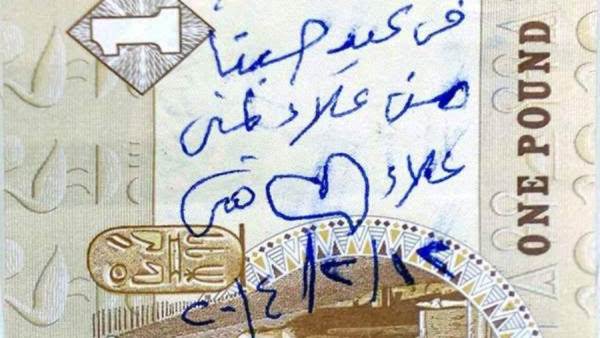 1
فى عيد حبنا
من علاء لمنى
علاء ♡ منى
ONE POUND